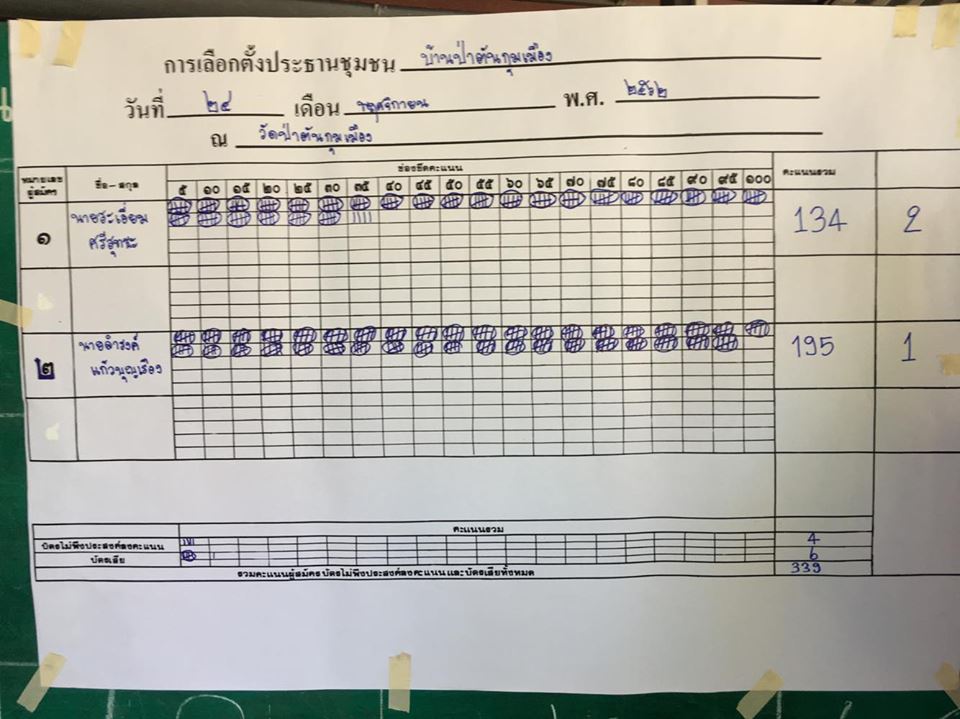 การเลือกตั้งประธานชุมชน บ้านป่าตันกุมเมือง
วันที่ ๒๔ เดือน พฤศจิกายน พ.ศ. ๒๕๖๒
ณ วัดป่าตันกุมเมือง
หมายเลขผู้สมัคร ชื่อ-สกุล ช่องขีดคะแนน คะแนนรวม
๕ ๑๐ ๑๕ ๒๐ ๒๕ ๓๐ ๓๕ ๔๐ ๔๕ ๕๐ ๕๕ ๖๐ ๖๕ ๗๐ ๗๕ ๘๐ ๘๕ ๙๐ ๙๕ ๑๐๐
๑ นายระเอี่ยม 134 2
ศรีสุทระ
๒ นายดำรงค์ 195 1
แก้วบุญเรือง
คะแนนรวม
บัตรไม่พึงประสงค์ลงคะแนน 4
บัตรเสีย 6
รวมคะแนนผู้สมัคร บัตรไม่พึงประสงค์ลงคะแนน และบัตรเสียทั้งหมด 339